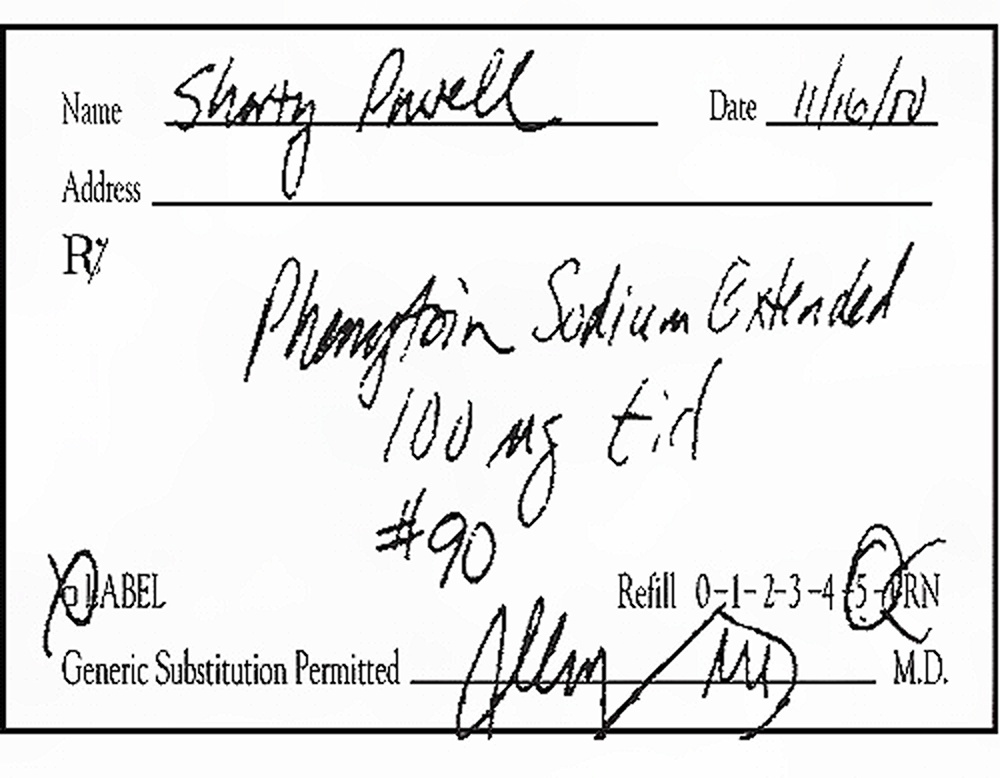 Name Shorty Powell Date 11/16/10
Address
Rx
Phenytoin Sodium Extended
100 mg tid
#90
LABEL Refill 0-1-2-3-4-5-PRN
Generic Substitution Permitted M.D.